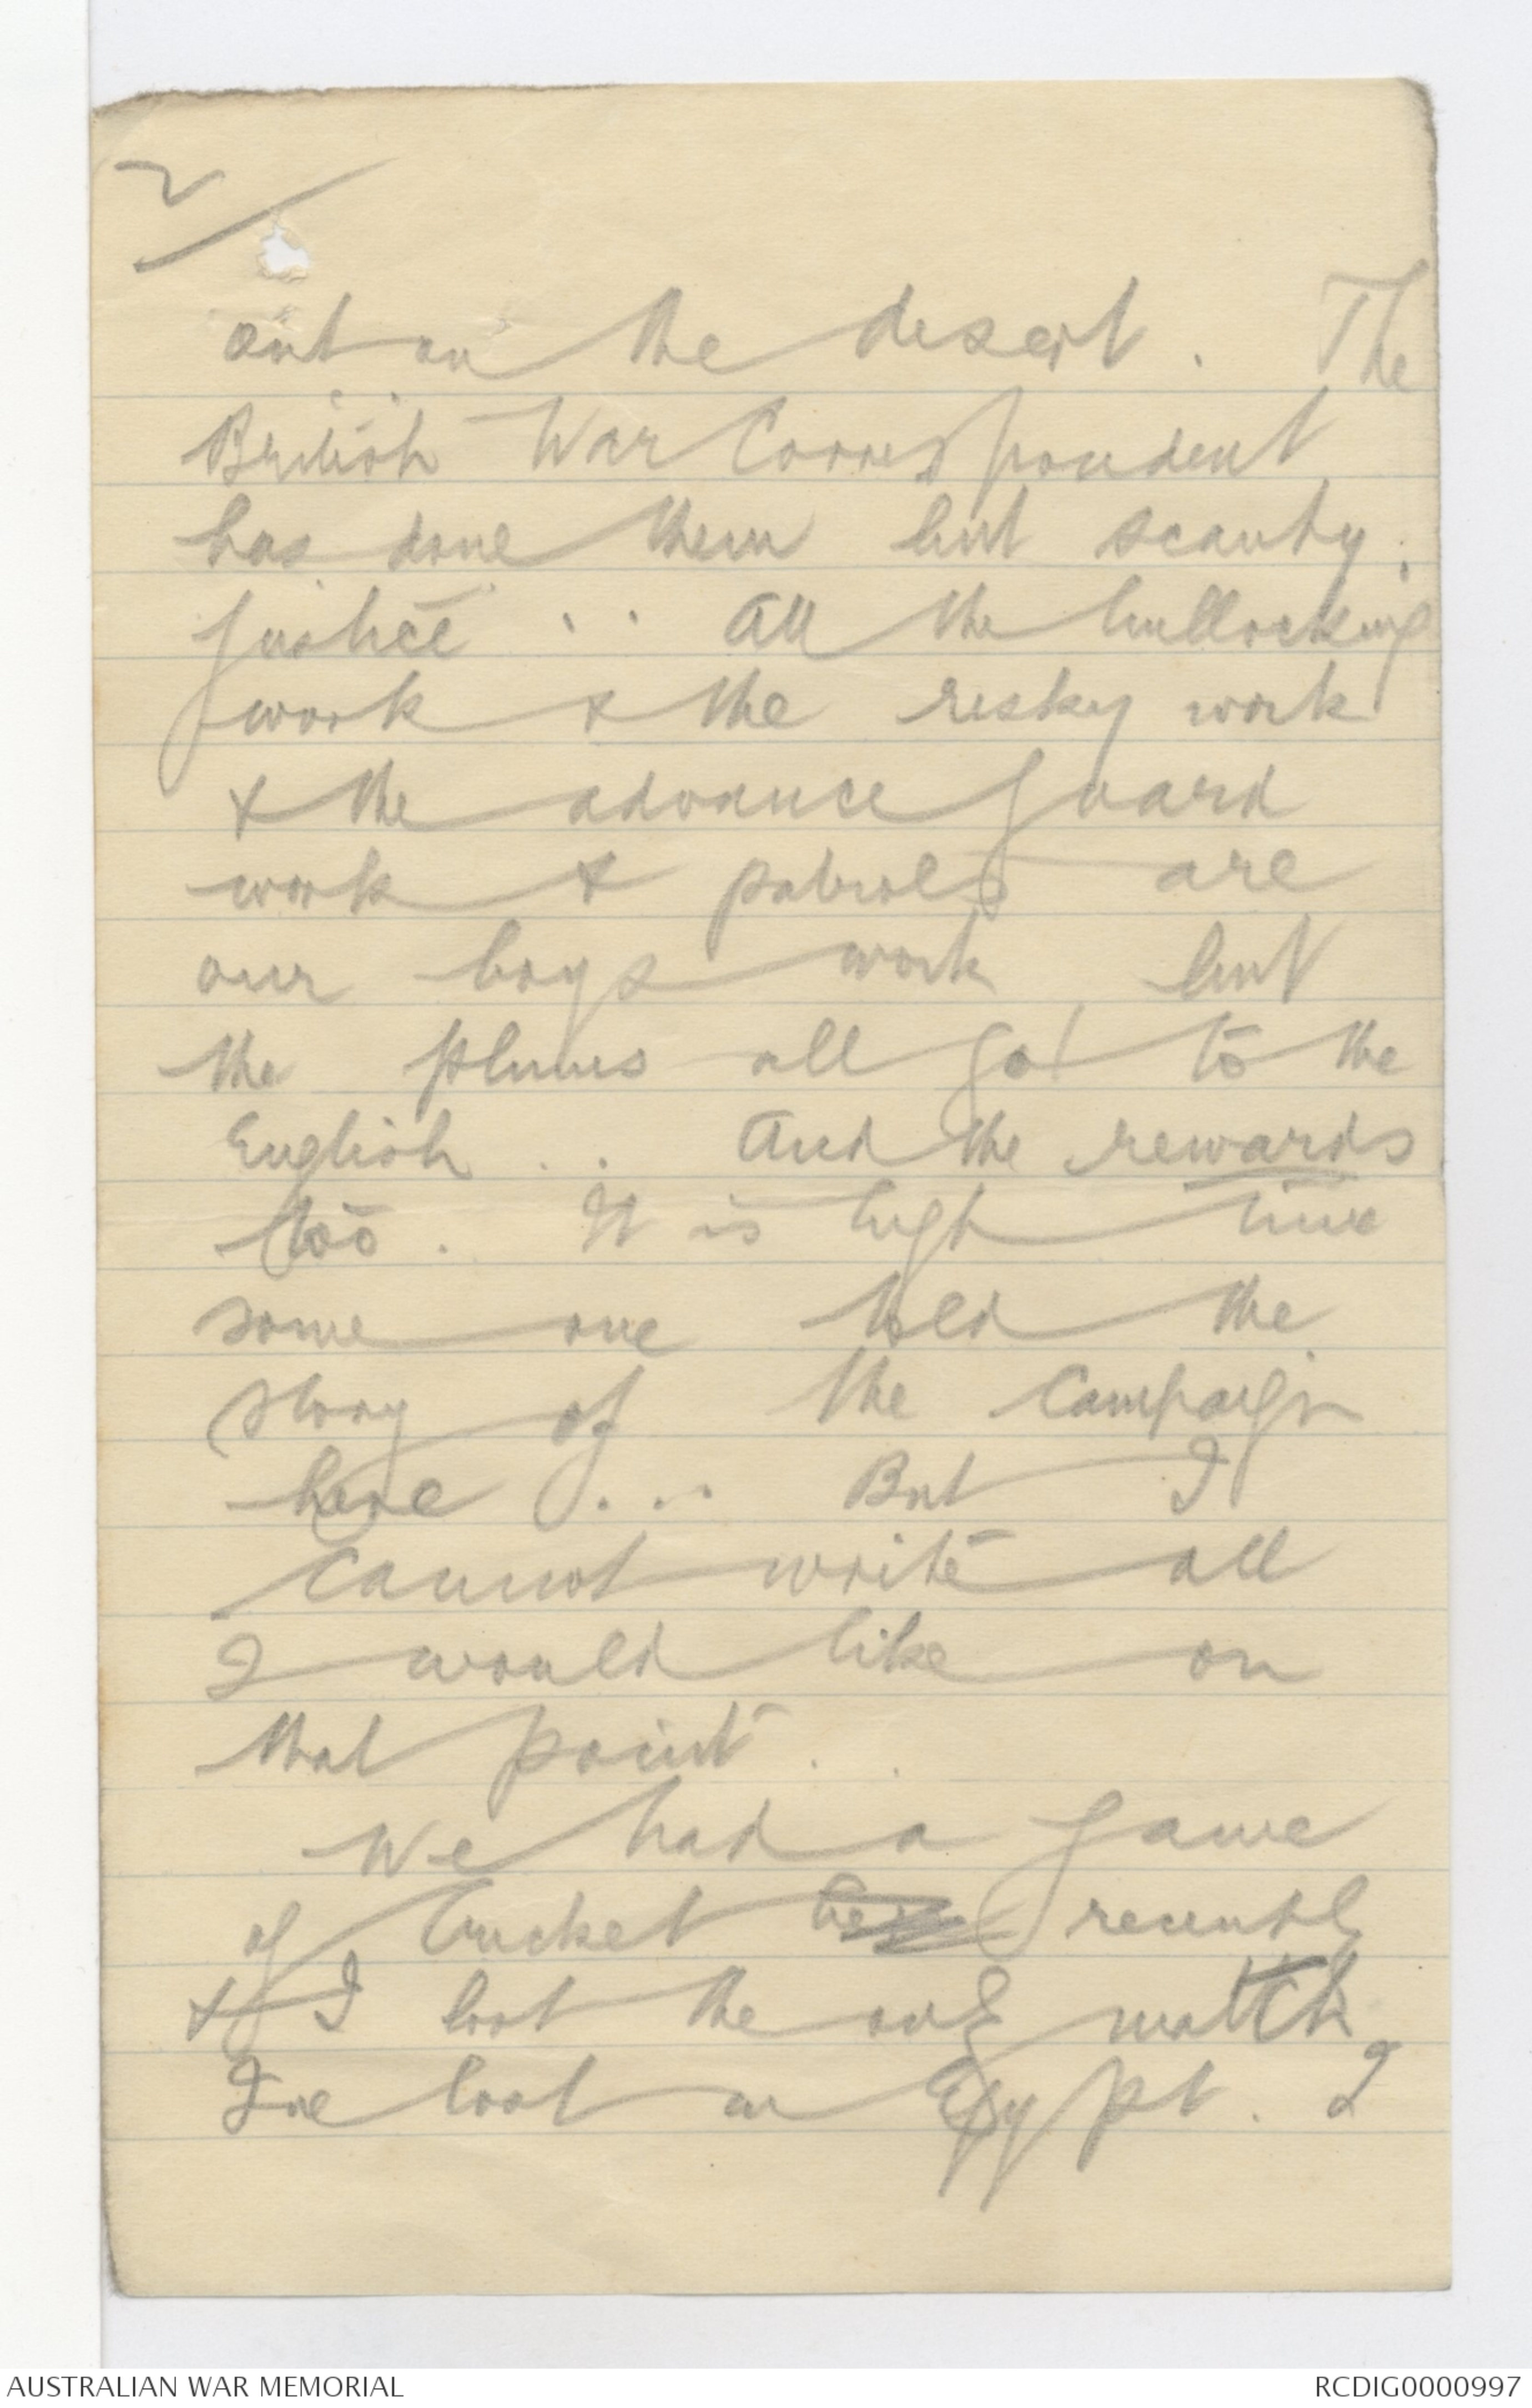 2/
out on the desert. The
British War Correspondent
has done them but scanty
justice .. All the bullocking
work & the risky work
& the advance guard
work & patrols are
our boys work, but
the plums all go to the
English .. And the rewards
too. It is high time
some one told the
story of the campaign
here ... But I
cannot write all
I would like on
that point..
We had a game
of cricket recently
& I lost the only match
I've lost in Egypt. I
AUSTRALIAN WAR MEMORIAL
RCDIG0000997